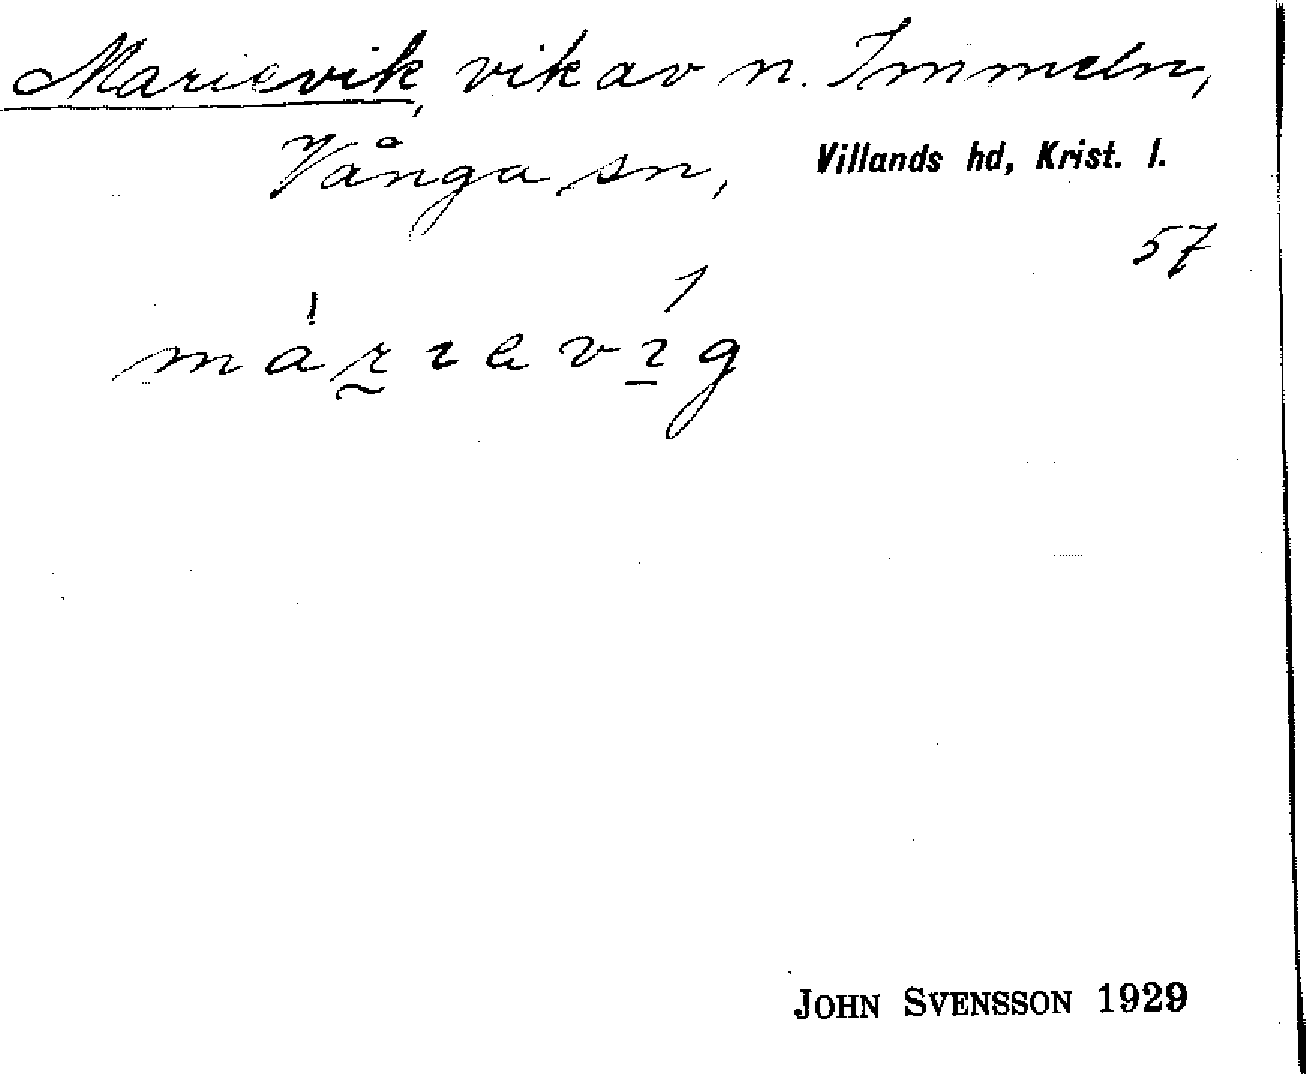 Marievik, vik av n. Immeln,
Vånga sn, Villands hd, Krist. l.
57
márɩavɩ́g
JOHN SVENSSON 1929